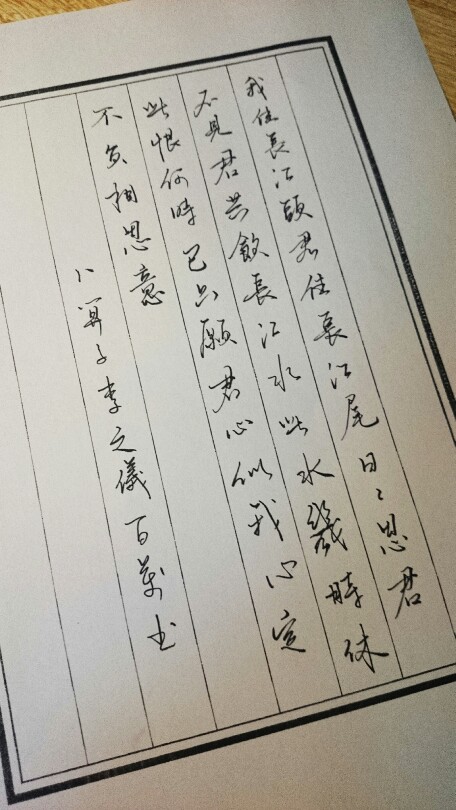 我住長江頭君住長江尾日〻思君
不見君共飲長江水此水幾時休
此恨何時已只願君心似我心定
不負相思意
卜算子李之儀百萬书